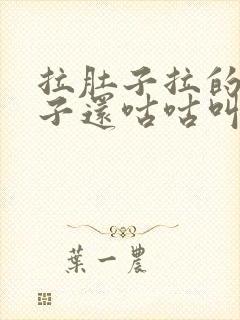 拉肚子拉的
子還咕咕叫
葉一農